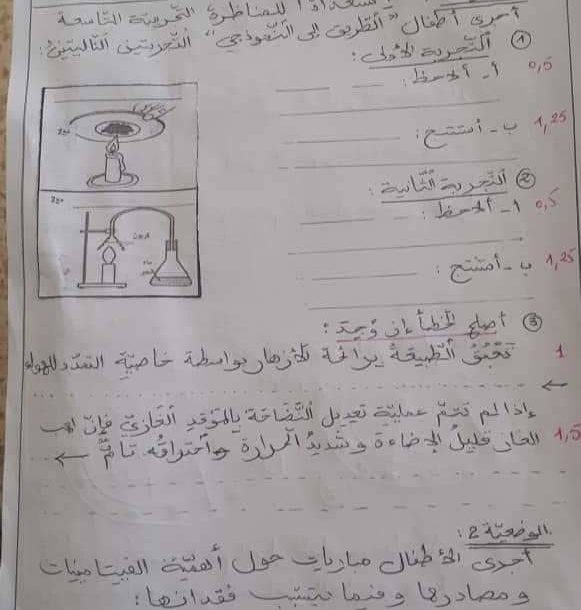 للمناظرة التجريبية التاسعة
أجرى أطفال "الطريق إلى النموذجي" التجربتين التاليتين:
① التجربة الأولى:
0,5 أ - ألاحظ:
1,25 ب - أستنتج:
② التجربة الثانية:
0,5 أ - ألاحظ:
1,25 ب - أستنتج:
③ أصلح الخطأ إن وجد:
1 تعبق الطبيعة برائحة الأزهار بواسطة خاصية التمدد للهواء
←
1,5 إذا لم تتم عملية تعديل النضّاحة بالموقد الغازي فإن لهب
الغاز قليل الإضاءة وشديد الحرارة واحتراقه تام ←
الوضعية 2:
أجرى الأطفال مباريات حول أهمية الفيتامينات
ومصادرها وفيما يتسبب فقدانها: